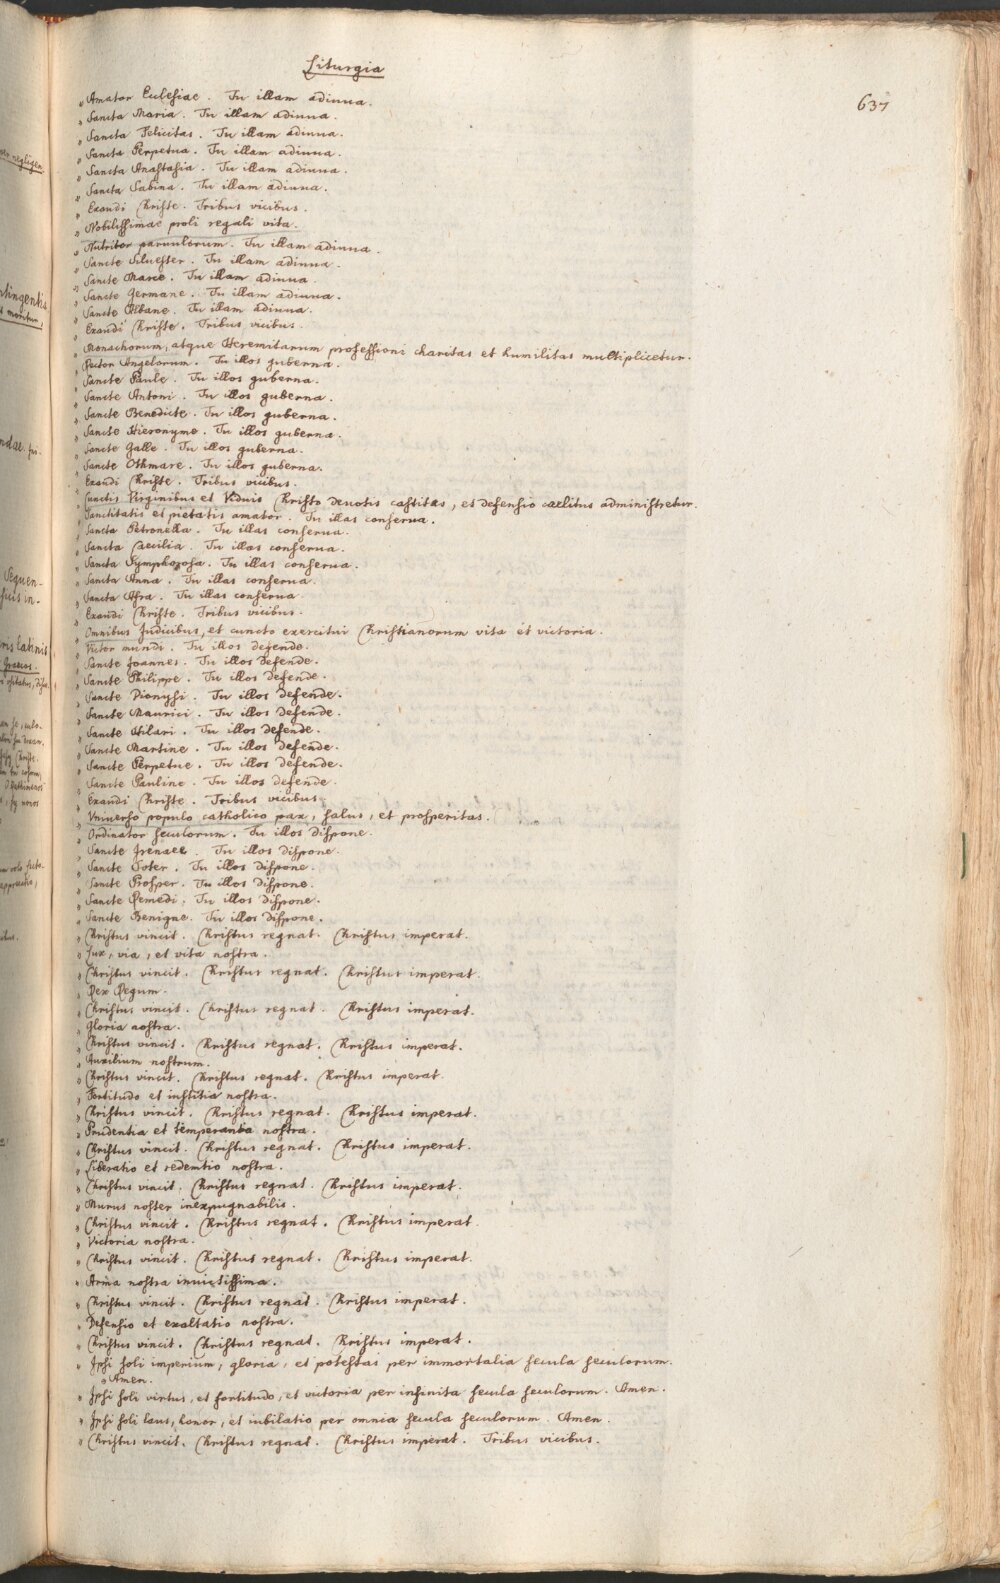 Liturgia
637
„ Amator Ecclesiae. Tu illam adiuua.
„ Sancta Maria. Tu illam adiuua.
„ Sancta Felicitas. Tu illam adiuua.
„ Sancta Perpetua. Tu illam adiuua.
„ Sancta Anastasia. Tu illam adiuua.
„ Sancta Sabina. Tu illam adiuua.
„ Exaudi Christe. Tribus vicibus.
„ Nobilissimae proli regali vita.
„ Nutritor paruulorum. Tu illam adiuua.
„ Sancte Siluester. Tu illam adiuua.
„ Sancte Marce. Tu illam adiuua.
„ Sancte Germane. Tu illam adiuua.
„ Sancte Albane. Tu illam adiuua.
„ Exaudi Christe. Tribus vicibus.
„ Monachorum, atque Heremitarum professioni charitas et humilitas multiplicetur.
„ Rector Angelorum. Tu illos guberna.
„ Sancte Paule. Tu illos guberna.
„ Sancte Antoni. Tu illos guberna.
„ Sancte Benedicte. Tu illos guberna.
„ Sancte Hieronyme. Tu illos guberna.
„ Sancte Galle. Tu illos guberna.
„ Sancte Othmare. Tu illos guberna.
„ Exaudi Christe. Tribus vicibus.
„ Cunctis Virginibus et Viduis Christo deuotis castitas, et defensio caelitus administretur.
„ Sanctitatis et pietatis amator. Tu illas conserua.
„ Sancta Petronella. Tu illas conserua.
„ Sancta Caecilia. Tu illas conserua.
„ Sancta Symphorosa. Tu illas conserua.
„ Sancta Anna. Tu illas conserua.
„ Sancta Afra. Tu illas conserua
„ Exaudi Christe. Tribus vicibus.
„ Omnibus Judicibus, et cuncto exercitui Christianorum vita et victoria.
„ Victor mundi. Tu illos defende.
„ Sancte Joannes. Tu illos defende.
„ Sancte Philippe. Tu illos defende.
„ Sancte Dionysi. Tu illos defende.
„ Sancte Maurici. Tu illos defende.
„ Sancte Hilari. Tu illos defende.
„ Sancte Martine. Tu illos defende.
„ Sancte Perpetue. Tu illos defende.
„ Sancte Pauline. Tu illos defende.
„ Exaudi Christe. Tribus vicibus.
„ Vniuerso populo catholico pax, salus, et prosperitas.
„ Ordinator seculorum. Tu illos dispone.
„ Sancte Irenaee. Tu illos dispone.
„ Sancte Soter. Tu illos dispone.
„ Sancte Prosper. Tu illos dispone.
„ Sancte Remedi. Tu illos dispone.
„ Sancte Benigne. Tu illos dispone.
„ Christus vincit. Christus regnat. Christus imperat.
„ Lux, via, et vita nostra.
„ Christus vincit. Christus regnat. Christus imperat.
„ Rex Regum.
„ Christus vincit. Christus regnat. Christus imperat.
„ Gloria nostra.
„ Christus vincit. Christus regnat. Christus imperat.
„ Auxilium nostrum.
„ Christus vincit. Christus regnat. Christus imperat.
„ Fortitudo et iustitia nostra.
„ Christus vincit. Christus regnat. Christus imperat.
„ Prudentia et temperantia nostra.
„ Christus vincit. Christus regnat. Christus imperat.
„ Liberatio et redemtio nostra.
„ Christus vincit. Christus regnat. Christus imperat.
„ Murus noster inexpugnabilis.
„ Christus vincit. Christus regnat. Christus imperat.
„ Victoria nostra.
„ Christus vincit. Christus regnat. Christus imperat.
„ Arma nostra inuictissima.
„ Christus vincit. Christus regnat. Christus imperat.
„ Defensio et exaltatio nostra.
„ Christus vincit. Christus regnat. Christus imperat.
„ Ipsi soli imperium, gloria, et potestas per immortalia secula seculorum.
„ Amen.
„ Ipsi soli virtus, et fortitudo, et victoria per infinita secula seculorum. Amen.
„ Ipsi soli laus, honor, et iubilatio per omnia secula seculorum. Amen.
„ Christus vincit. Christus regnat. Christus imperat. Tribus vicibus.